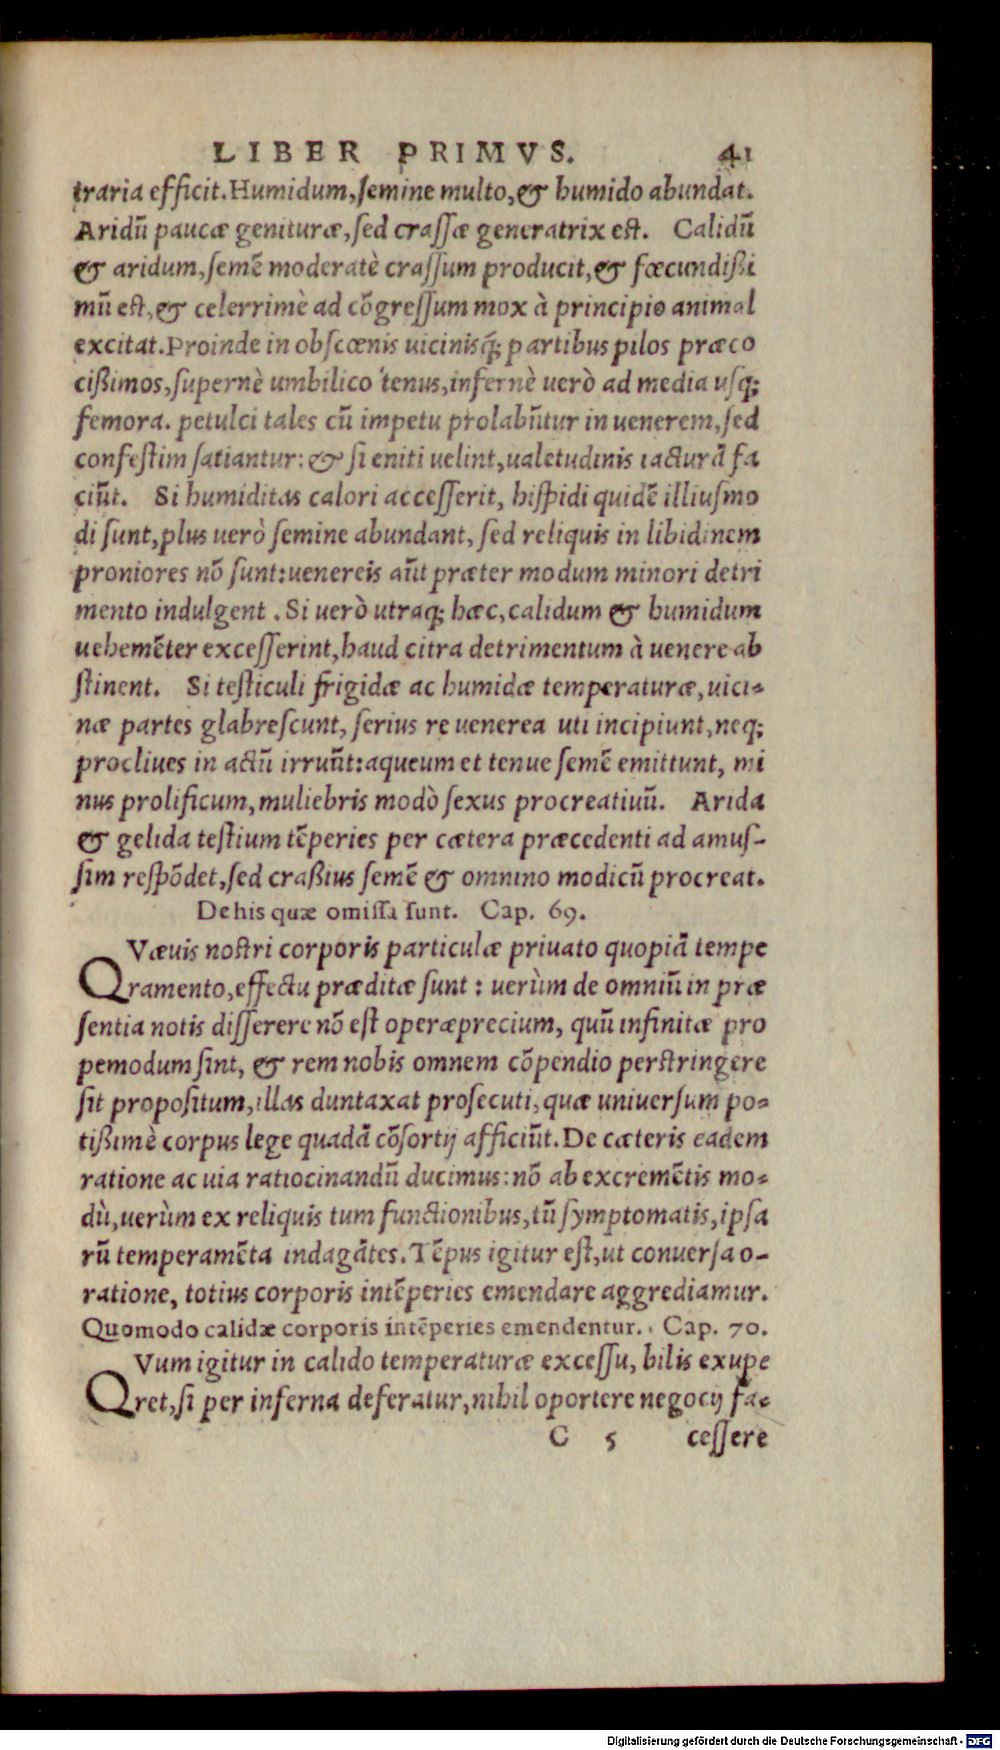 LIBER PRIMVS. 41
traria efficit. Humidum, semine multo, & humido abundat.
Aridũ paucæ genituræ, sed crassæ generatrix est. Calidũ
& aridum, semẽ moderatè crassum producit, & fœcundißi
mũ est, & celerrimè ad cõgressum mox à principio animal
excitat. Proinde in obscœnis uicinisq́; partibus pilos præco
cißimos, supernè umbilico tenus, infernè uerò ad media usq;
femora. petulci tales cũ impetu prolabũtur in uenerem, sed
confestim satiantur: & si eniti uelint, ualetudinis iacturã fa
ciũt. Si humiditas calori accesserit, hispidi quidẽ illiusmo
di sunt, plus uerò semine abundant, sed reliquis in libidinem
proniores nõ sunt: uenereis aũt præter modum minori detri
mento indulgent. Si uerò utraq; hæc, calidum & humidum
uehemẽter excesserint, haud citra detrimentum à uenere ab
stinent. Si testiculi frigidæ ac humidæ temperaturæ, uici-
næ partes glabrescunt, serius re uenerea uti incipiunt, neq;
procliues in actũ irruũt: aqueum et tenue semẽ emittunt, mi
nus prolificum, muliebris modò sexus procreatiuũ. Arida
& gelida testium tẽperies per cætera præcedenti ad amus-
sim respõdet, sed craßius semẽ & omnino modicũ procreat.
De his quæ omissa sunt. Cap. 69.
QVæuis nostri corporis particulæ priuato quopiã tempe
ramento, effectu præditæ sunt: uerùm de omniũ in præ
sentia notis disserere nõ est operæprecium, quũ infinitæ pro
pemodum sint, & rem nobis omnem cõpendio perstringere
sit propositum, illas duntaxat prosecuti, quæ uniuersum po-
tißimè corpus lege quadã cõsortij afficiũt. De cæteris eadem
ratione ac uia ratiocinandũ ducimus: nõ ab excremẽtis mo-
dù, uerùm ex reliquis tum functionibus, tũ symptomatis, ipsa
rũ temperamẽta indagãtes. Tẽpus igitur est, ut conuersa o-
ratione, totius corporis intẽperies emendare aggrediamur.
Quomodo calidæ corporis intẽperies emendentur. Cap. 70.
QVum igitur in calido temperaturæ excessu, bilis exupe
ret, si per inferna deferatur, nihil oportere negocij fa-
C 5 cessere
Digitalisierung gefördert durch die Deutsche Forschungsgemeinschaft - DFG